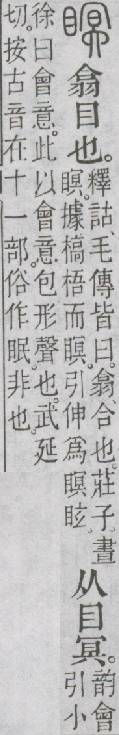 瞑
翕目也。
釋詁、毛傳皆曰。翕、合也。莊子。晝
瞑。據槁梧而瞑。引伸爲瞑眩。
从目冥。
韵會
引小
徐曰會意。此以會意包形聲也。武延
切。按古音在十一部。俗作眠。非也。